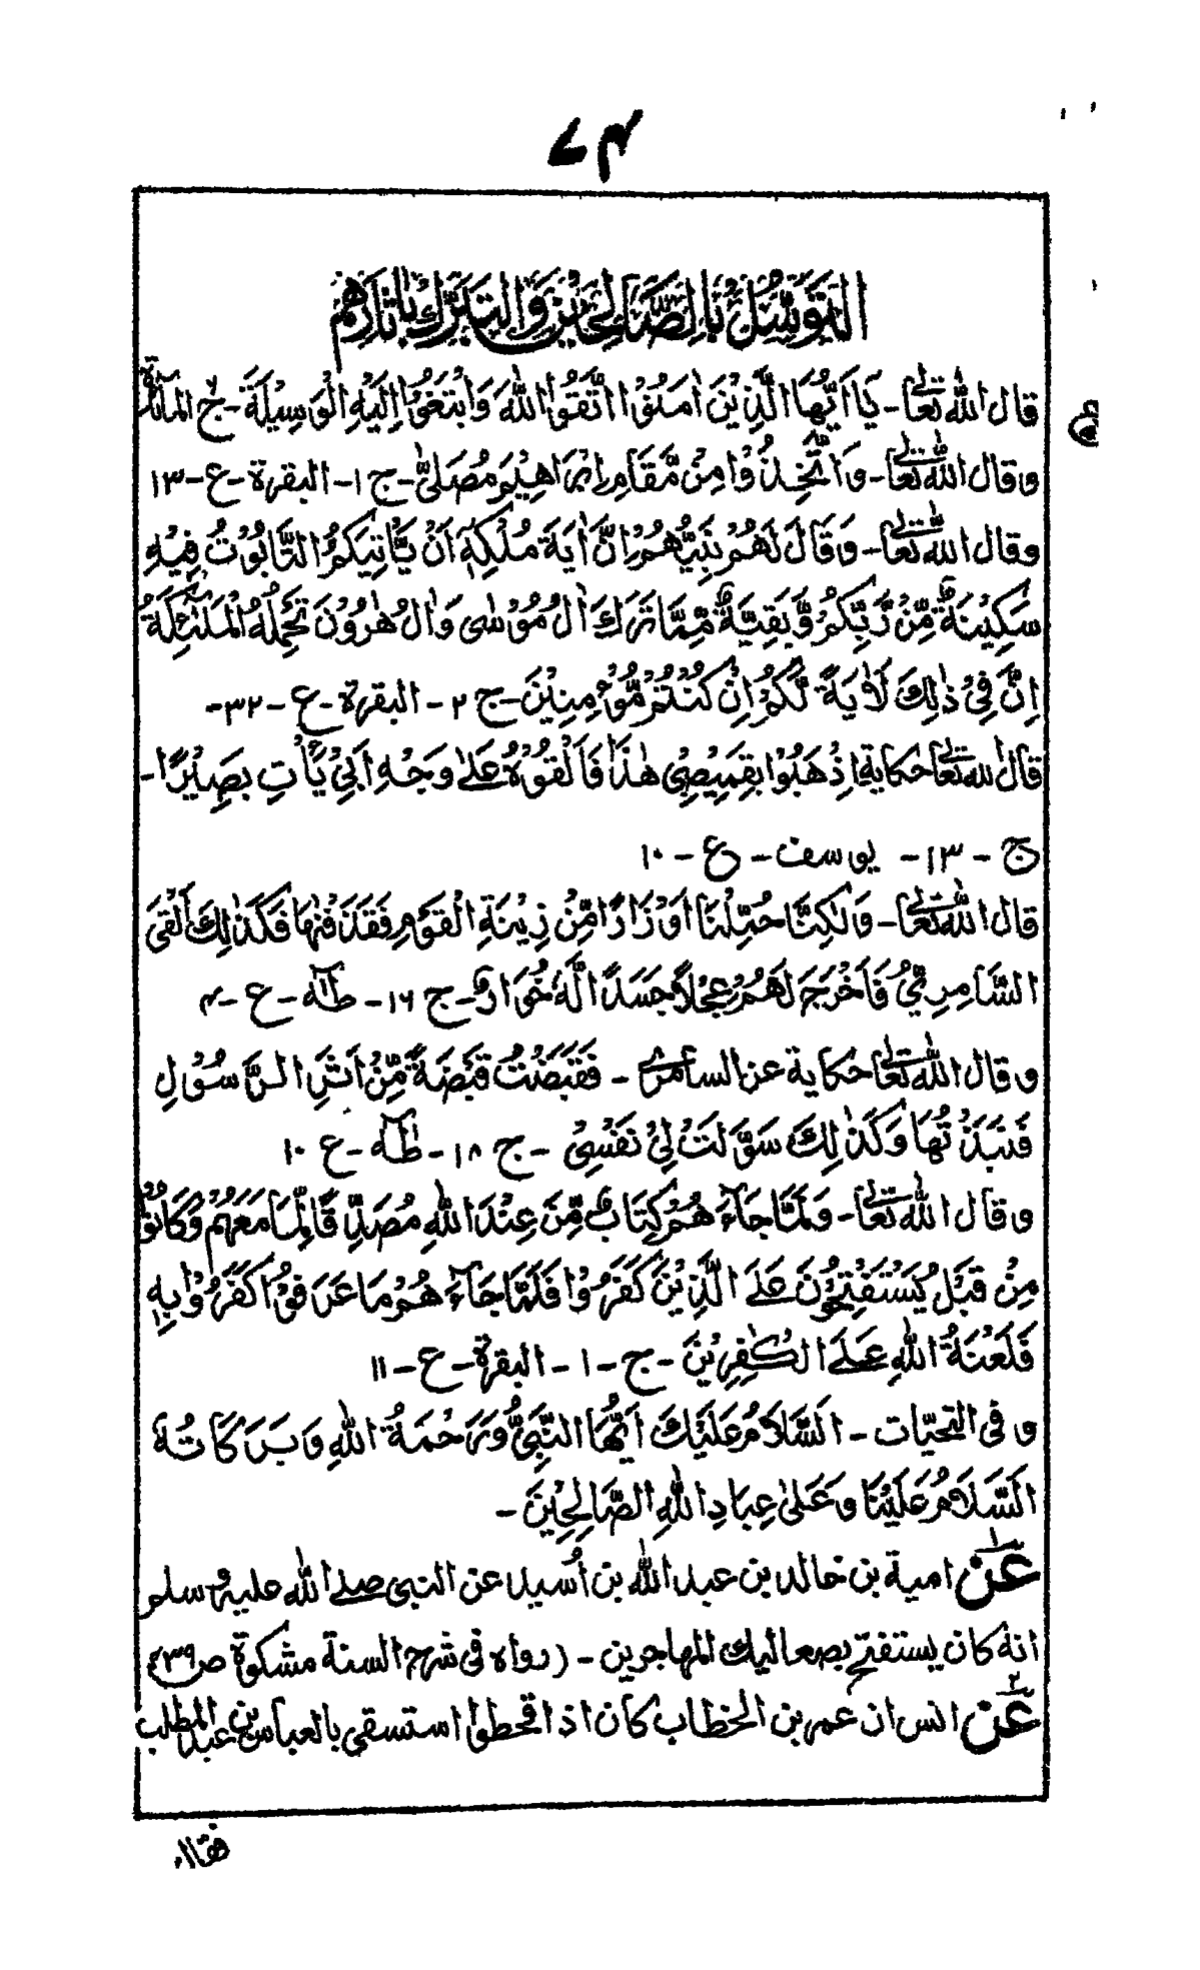 ۷۴
التَّوَسُّلُ بِالصَّالِحِيْنَ وَالتَّبَرُّكُ بِاٰثَارِهِمْ
قال الله تعالى - يَا اَيُّهَا الَّذِيْنَ اٰمَنُوْا اتَّقُوا اللهَ وَابْتَغُوْا اِلَيْهِ الْوَسِيْلَةَ - ج ٦ المائدة
وقال الله تعالى - وَاتَّخِذُوْا مِنْ مَّقَامِ اِبْرَاهِيْمَ مُصَلًّى - ج ۱ - البقرة - ع - ۱۳
وقال الله تعالى - وَقَالَ لَهُمْ نَبِيُّهُمْ اِنَّ اٰيَةَ مُلْكِهٖ اَنْ يَّاْتِيَكُمُ التَّابُوْتُ فِيْهِ
سَكِيْنَةٌ مِّنْ رَّبِّكُمْ وَبَقِيَّةٌ مِّمَّا تَرَكَ اٰلُ مُوْسٰى وَاٰلُ هٰرُوْنَ تَحْمِلُهُ الْمَلٰٓئِكَةُ
اِنَّ فِيْ ذٰلِكَ لَاٰيَةً لَّكُمْ اِنْ كُنْتُمْ مُّؤْمِنِيْنَ - ج ۲ - البقرة - ع - ۳۲ -
قال الله تعالى حكاية اِذْهَبُوْا بِقَمِيْصِيْ هٰذَا فَاَلْقُوْهُ عَلٰى وَجْهِ اَبِيْ يَاْتِ بَصِيْرًا -
ج - ۱۳ - يوسف - ع - ۱۰
قال الله تعالى - وَلٰكِنَّا حُمِّلْنَا اَوْزَارًا مِّنْ زِيْنَةِ الْقَوْمِ فَقَذَفْنٰهَا فَكَذٰلِكَ اَلْقَى
السَّامِرِيُّ فَاَخْرَجَ لَهُمْ عِجْلًا جَسَدًا لَّهٗ خُوَارٌ - ج ۱۶ - طٰهٰ - ع - ۴
وقال الله تعالى حكاية عن السامرى - فَقَبَضْتُ قَبْضَةً مِّنْ اَثَرِ الرَّسُوْلِ
فَنَبَذْتُهَا وَكَذٰلِكَ سَوَّلَتْ لِيْ نَفْسِيْ - ج ۱۸ - طٰهٰ - ع ۱۰
وقال الله تعالى - وَلَمَّا جَآءَهُمْ كِتَابٌ مِّنْ عِنْدَ اللهِ مُصَدِّقًا لِّمَا مَعَهُمْ وَكَانُوْا
مِنْ قَبْلُ يَسْتَفْتِحُوْنَ عَلَى الَّذِيْنَ كَفَرُوْا فَلَمَّا جَآءَهُمْ مَا عَرَفُوْا كَفَرُوْا بِهٖ
فَلَعْنَةُ اللهِ عَلَى الْكٰفِرِيْنَ - ج - ۱ - البقرة - ع - ۱۱
وفى التحيّات - اَلسَّلَامُ عَلَيْكَ اَيُّهَا النَّبِيُّ وَرَحْمَةُ اللهِ وَبَرَكَاتُهٗ
اَلسَّلَامُ عَلَيْنَا وَعَلٰى عِبَادِ اللهِ الصَّالِحِيْنَ -
عَنْ ۱ امية بن خالد بن عبد الله بن اُسيد عن النبى صلى الله عليه وسلم
انه كان يستفتح بصعاليك المهاجرين - (رواه فى شرح السنة مشكوة ص ۴۳۹)
عَنْ ۲ انس ان عمر بن الخطاب كان اذا قحطوا استسقى بالعباس بن عبد المطلب
فقال